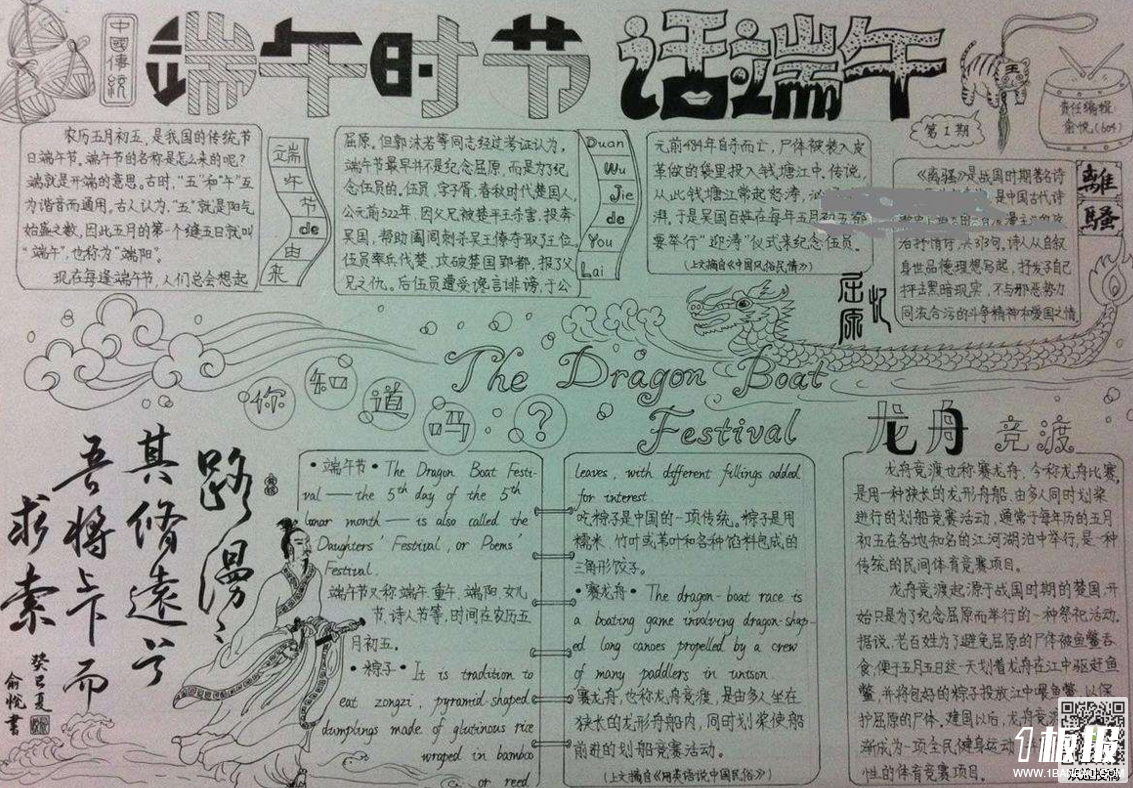 中國傳統
端午时节 话端午
第1期
责任编辑
俞悦(604)
端午节de由来
农历五月初五,是我国的传统节
日端午节。端午节的名称是怎么来的呢?
端就是开端的意思。古时,“五”和“午”互
为谐音而通用。古人认为,“五”就是阳气
始盛之数,因此五月的第一个逢五日就叫
“端午”,也称为“端阳”。
现在每逢端午节,人们总会想起
屈原。但郭沫若等同志经过考证认为,
端午节最早并不是纪念屈原,而是为了纪
念伍员的。伍员,字子胥,春秋时代楚国人,
公元前522年,因父兄被楚平王杀害,投奔
吴国,帮助阖闾刺杀吴王僚夺取了王位。
伍员率兵伐楚,攻破楚国郢都,报了父
兄之仇。后伍员遭受谗言诽谤,于公
Duan
Wu
Jie
de
You
Lai
元前484年自杀而亡,尸体被装入皮
革做的袋里投入钱塘江中,传说,
从此钱塘江常起怒涛,
湃,于是吴国百姓在每年五月初五
要举行“迎涛”仪式来纪念伍员。
(上文摘自《中国风俗民情》)
離騷
《离骚》是战国时期著名诗
是中国古代诗
治抒情诗,共373句,诗人从自叙
身世品德理想写起,抒发了自己
抨击黑暗现实,不与邪恶势力
同流合污的斗争精神和爱国之情
忆屈原
The Dragon Boat
Festival
你知道吗?
路漫漫
其脩遠兮
吾將
而
求索
癸巳夏
俞悦書
•端午节•The Dragon Boat Festi-
val——the 5th day of the 5th
lunar month——is also called the
Daughters' Festival, or Poems'
Festival.
端午节又称端午、重午、端阳、女儿
节、诗人节等,时间在农历五
月初五。
•粽子•It is tradition to
eat zongzi, pyramid-shaped
dumplings made of glutinous rice
wraped in bamboo
or reed
leaves, with different fillings added
for interest
吃粽子是中国的一项传统。粽子是用
糯米、竹叶或苇叶和各种馅料包成的
三角形饺子。
•赛龙舟•The dragon-boat race is
a boating game involving dragon-shap-
ed long canoes propelled by a crew
of many paddlers in untson.
赛龙舟,也称龙舟竞渡,是由多人坐在
狭长的龙形舟船内,同时划桨使船
前进的划船竞赛活动。
(上文摘自《用英语说中国民俗》)
龙舟竞渡
龙舟竞渡也称赛龙舟,今称龙舟比赛,
是用一种狭长的龙形舟船,由多人同时划桨
进行的划船竞赛活动,通常于每年历的五月
初五在各地知名的江河湖泊中举行,是一种
传统的民间体育竞赛项目。
龙舟竞渡起源于战国时期的楚国,开
始只是为了纪念屈原而举行的一种祭祀活动。
据说,老百姓为了避免屈原的尸体被鱼鳖吞
食,便于五月五日这一天划着龙舟在江中驱赶鱼
鳖,并将包好的粽子投放江中喂鱼鳖,以保
护屈原的尸体。建国以后,龙舟竞
渐成为一项全民健身运动
性的体育竞赛项目。
1板报
WWW.1BANBAO.COM
欢迎投稿